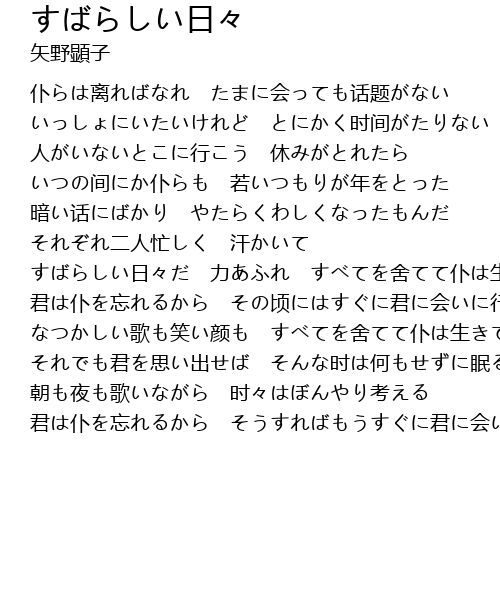 すばらしい日々
矢野顕子
仆らは离ればなれ　たまに会っても话题がない
いっしょにいたいけれど　とにかく时间がたりない
人がいないとこに行こう　休みがとれたら
いつの间にか仆らも　若いつもりが年をとった
暗い话にばかり　やたらくわしくなったもんだ
それぞれ二人忙しく　汗かいて
すばらしい日々だ　力あふれ　すべてを舍てて仆は生
君は仆を忘れるから　その顷にはすぐに君に会いに行
なつかしい歌も笑い颜も　すべてを舍てて仆は生きて
それでも君を思い出せば　そんな时は何もせずに眠る
朝も夜も歌いながら　时々はぼんやり考える
君は仆を忘れるから　そうすればもうすぐに君に会い